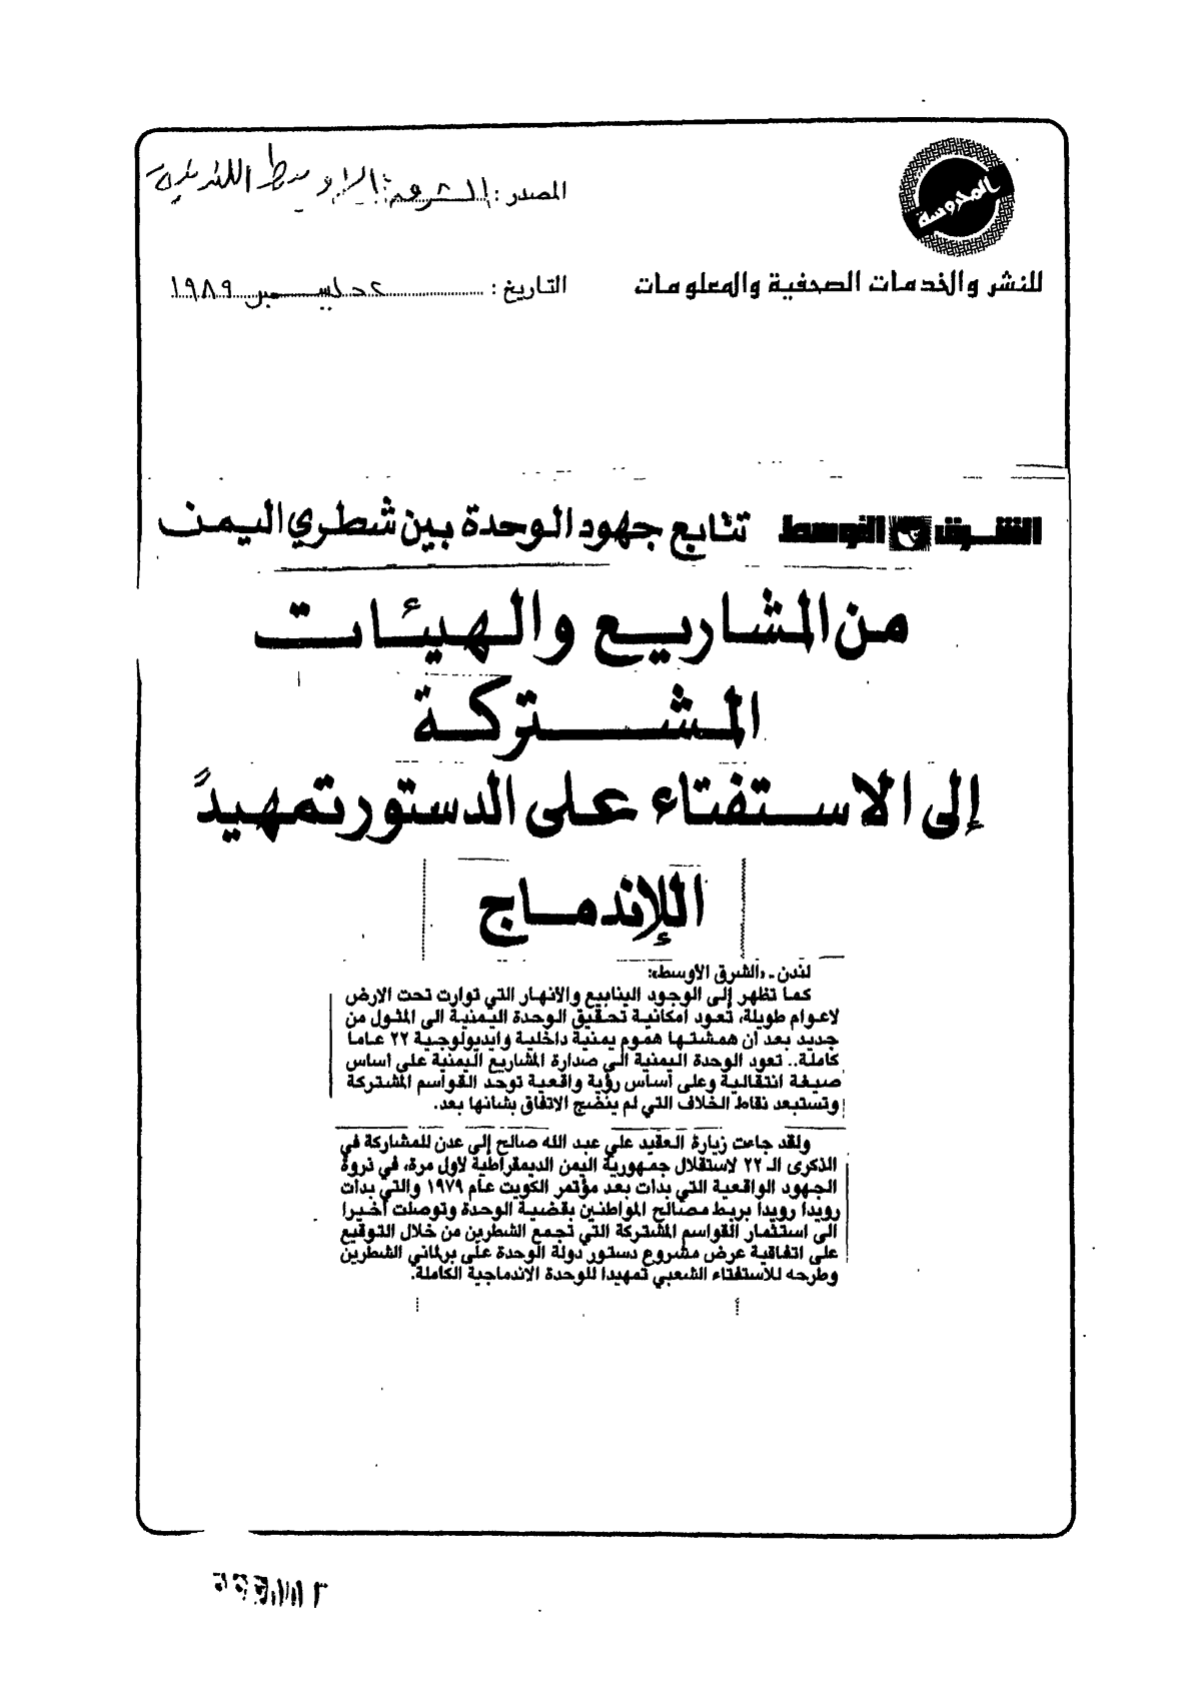 المحروسة
للنشر والخدمات الصحفية والمعلومات
المصدر : الشرق الاوسط اللندنية
التاريخ : ٢ ديسمبر ١٩٨٩
الشرق الاوسط تتابع جهود الوحدة بين شطري اليمن
من المشاريع والهيئات
المشتركة
إلى الاستفتاء على الدستور تمهيدً
اللإندماج
لندن ـ «الشرق الأوسط»:
كما تظهر إلى الوجود الينابيع والانهار التي توارت تحت الارض
لاعوام طويلة، تعود امكانية تحقيق الوحدة اليمنية الى المثول من
جديد بعد ان همشتها هموم يمنية داخلية وايديولوجية ٢٢ عاما
كاملة.. تعود الوحدة اليمنية الى صدارة المشاريع اليمنية على اساس
صيغة انتقالية وعلى أساس رؤية واقعية توحد القواسم المشتركة
وتستبعد نقاط الخلاف التي لم ينضج الاتفاق بشانها بعد.
ولقد جاءت زيارة العقيد علي عبد الله صالح إلى عدن للمشاركة في
الذكرى الـ ٢٢ لاستقلال جمهورية اليمن الديمقراطية لاول مرة، في ذروة
الجهود الواقعية التي بدات بعد مؤتمر الكويت عام ١٩٧٩ والتي بدات
رويدا رويدا بربط مصالح المواطنين بقضية الوحدة وتوصلت أخيرا
الى استثمار القواسم المشتركة التي تجمع الشطرين من خلال التوقيع
على اتفاقية عرض مشروع دستور دولة الوحدة على برلماني الشطرين
وطرحه للاستفتاء الشعبي تمهيدا للوحدة الاندماجية الكاملة.